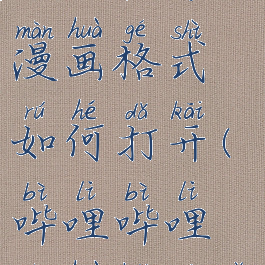 màn huà gé shì
漫画格式
rú hé dǎ kāi
如何打开(
bì lì bì lì
哔哩哔哩